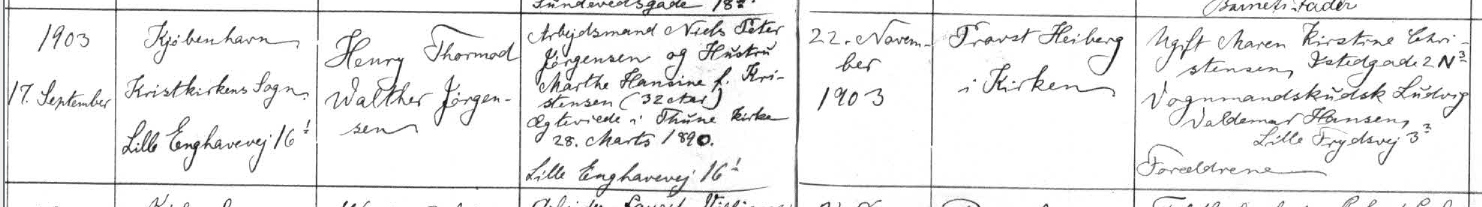 Sundevedsgade 18
Barnets Fader
1903
17. September
Kjøbenhavn
Kristkirkens Sogn
Lille Enghavevej 16¹
Henry Thormod
Walther Jörgen-
sen
Arbejdsmand Niels Peter
Jörgensen og Hustru
Marthe Hansine f. Kri-
stensen (32 Aar)
Ægteviede i Thune Kirke
28. Marts 1890.
Lille Enghavevej 16¹
22. Novem-
ber
1903
Provst Heiberg
i Kirken
Ugift Maren Kirstine Chri-
stensen, Istedgade 2
Vognmandskudsk Ludvig
Valdemar Hansen,
Lille Frydsvej 3²
Forældrene